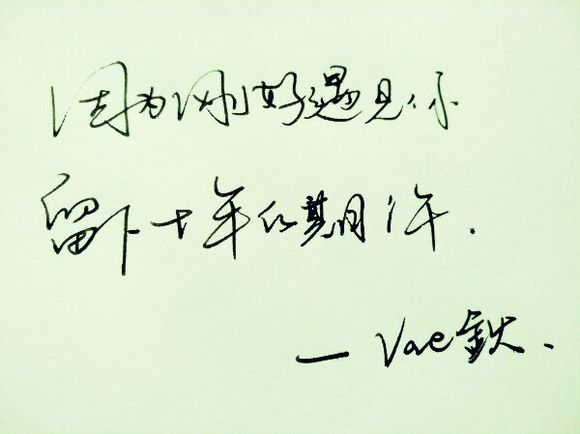 因为刚好遇见你
留下十年的期许.
— Vae